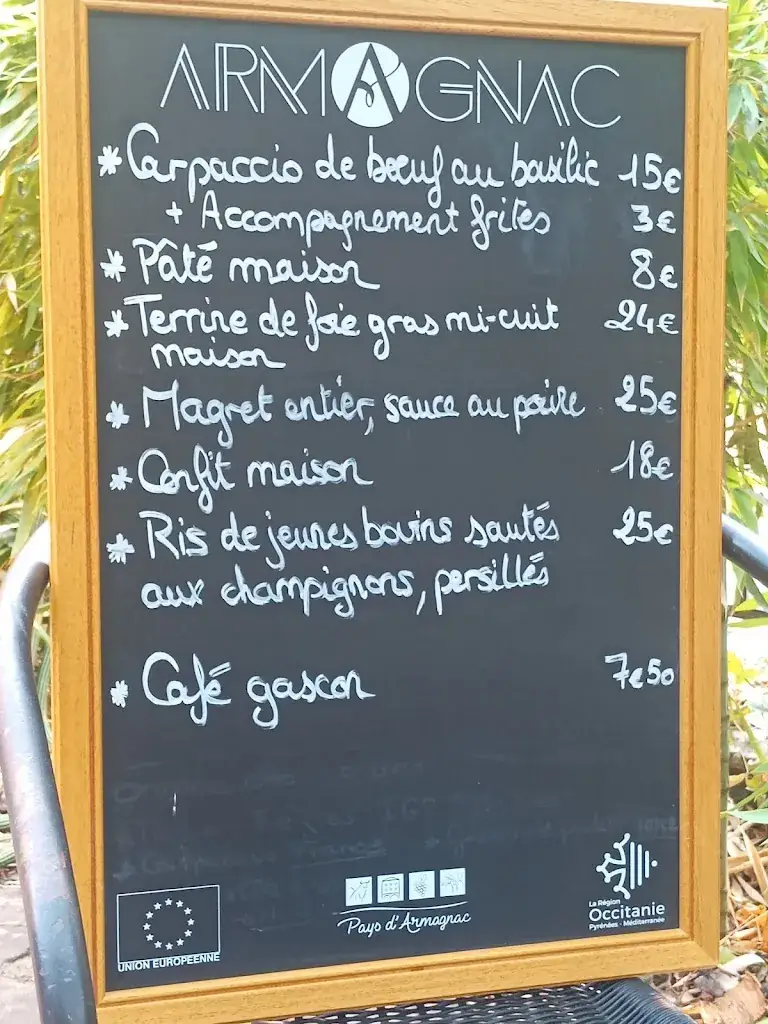 ARMAGNAC
* Carpaccio de bœuf au basilic 15€
+ Accompagnement frites 3€
* Pâté maison 8€
* Terrine de foie gras mi-cuit 24€
maison
* Magret entier, sauce au poivre 25€
* Confit maison 18€
* Ris de jeunes bovins sautés 25€
aux champignons, persillés
* Café gascon 7€50
UNION EUROPEENNE
Pays d'Armagnac
La Région
Occitanie
Pyrénées - Méditerranée